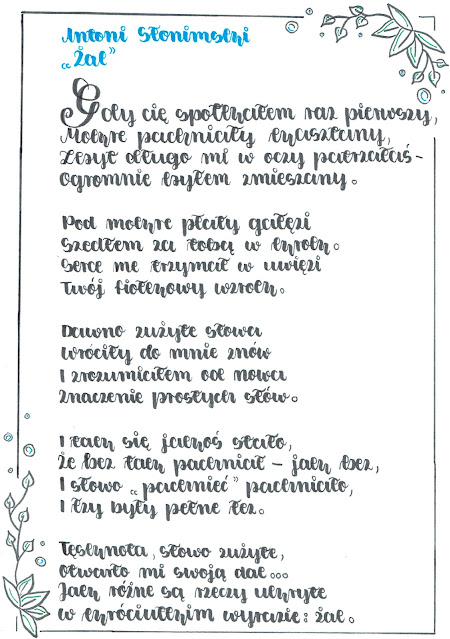 Antoni Słonimski
„Żal”
Gdy cię spotkałem raz pierwszy,
Mokre pachniały kasztany,
Zbyt długo mi w oczy patrzałaś –
Ogromnie byłem zmieszany.
Pod mokre płaty gałęzi
Szedłem za tobą w krok.
Serce me trzymał w uwięzi
Twój fiołkowy wzrok.
Dawno zużyte słowa
Wróciły do mnie znów
I zrozumiałem od nowa
Znaczenie prostych słów.
I tak się jakoś stało,
Że bez tak pachniał – jak bez,
I słowo „pachnieć” pachniało,
I łzy były pełne łez.
Tęsknota, słowo zużyte,
Otwarło mi swoją dal...
Jak różne są rzeczy ukryte
w króciutkim wyrazie: żal.